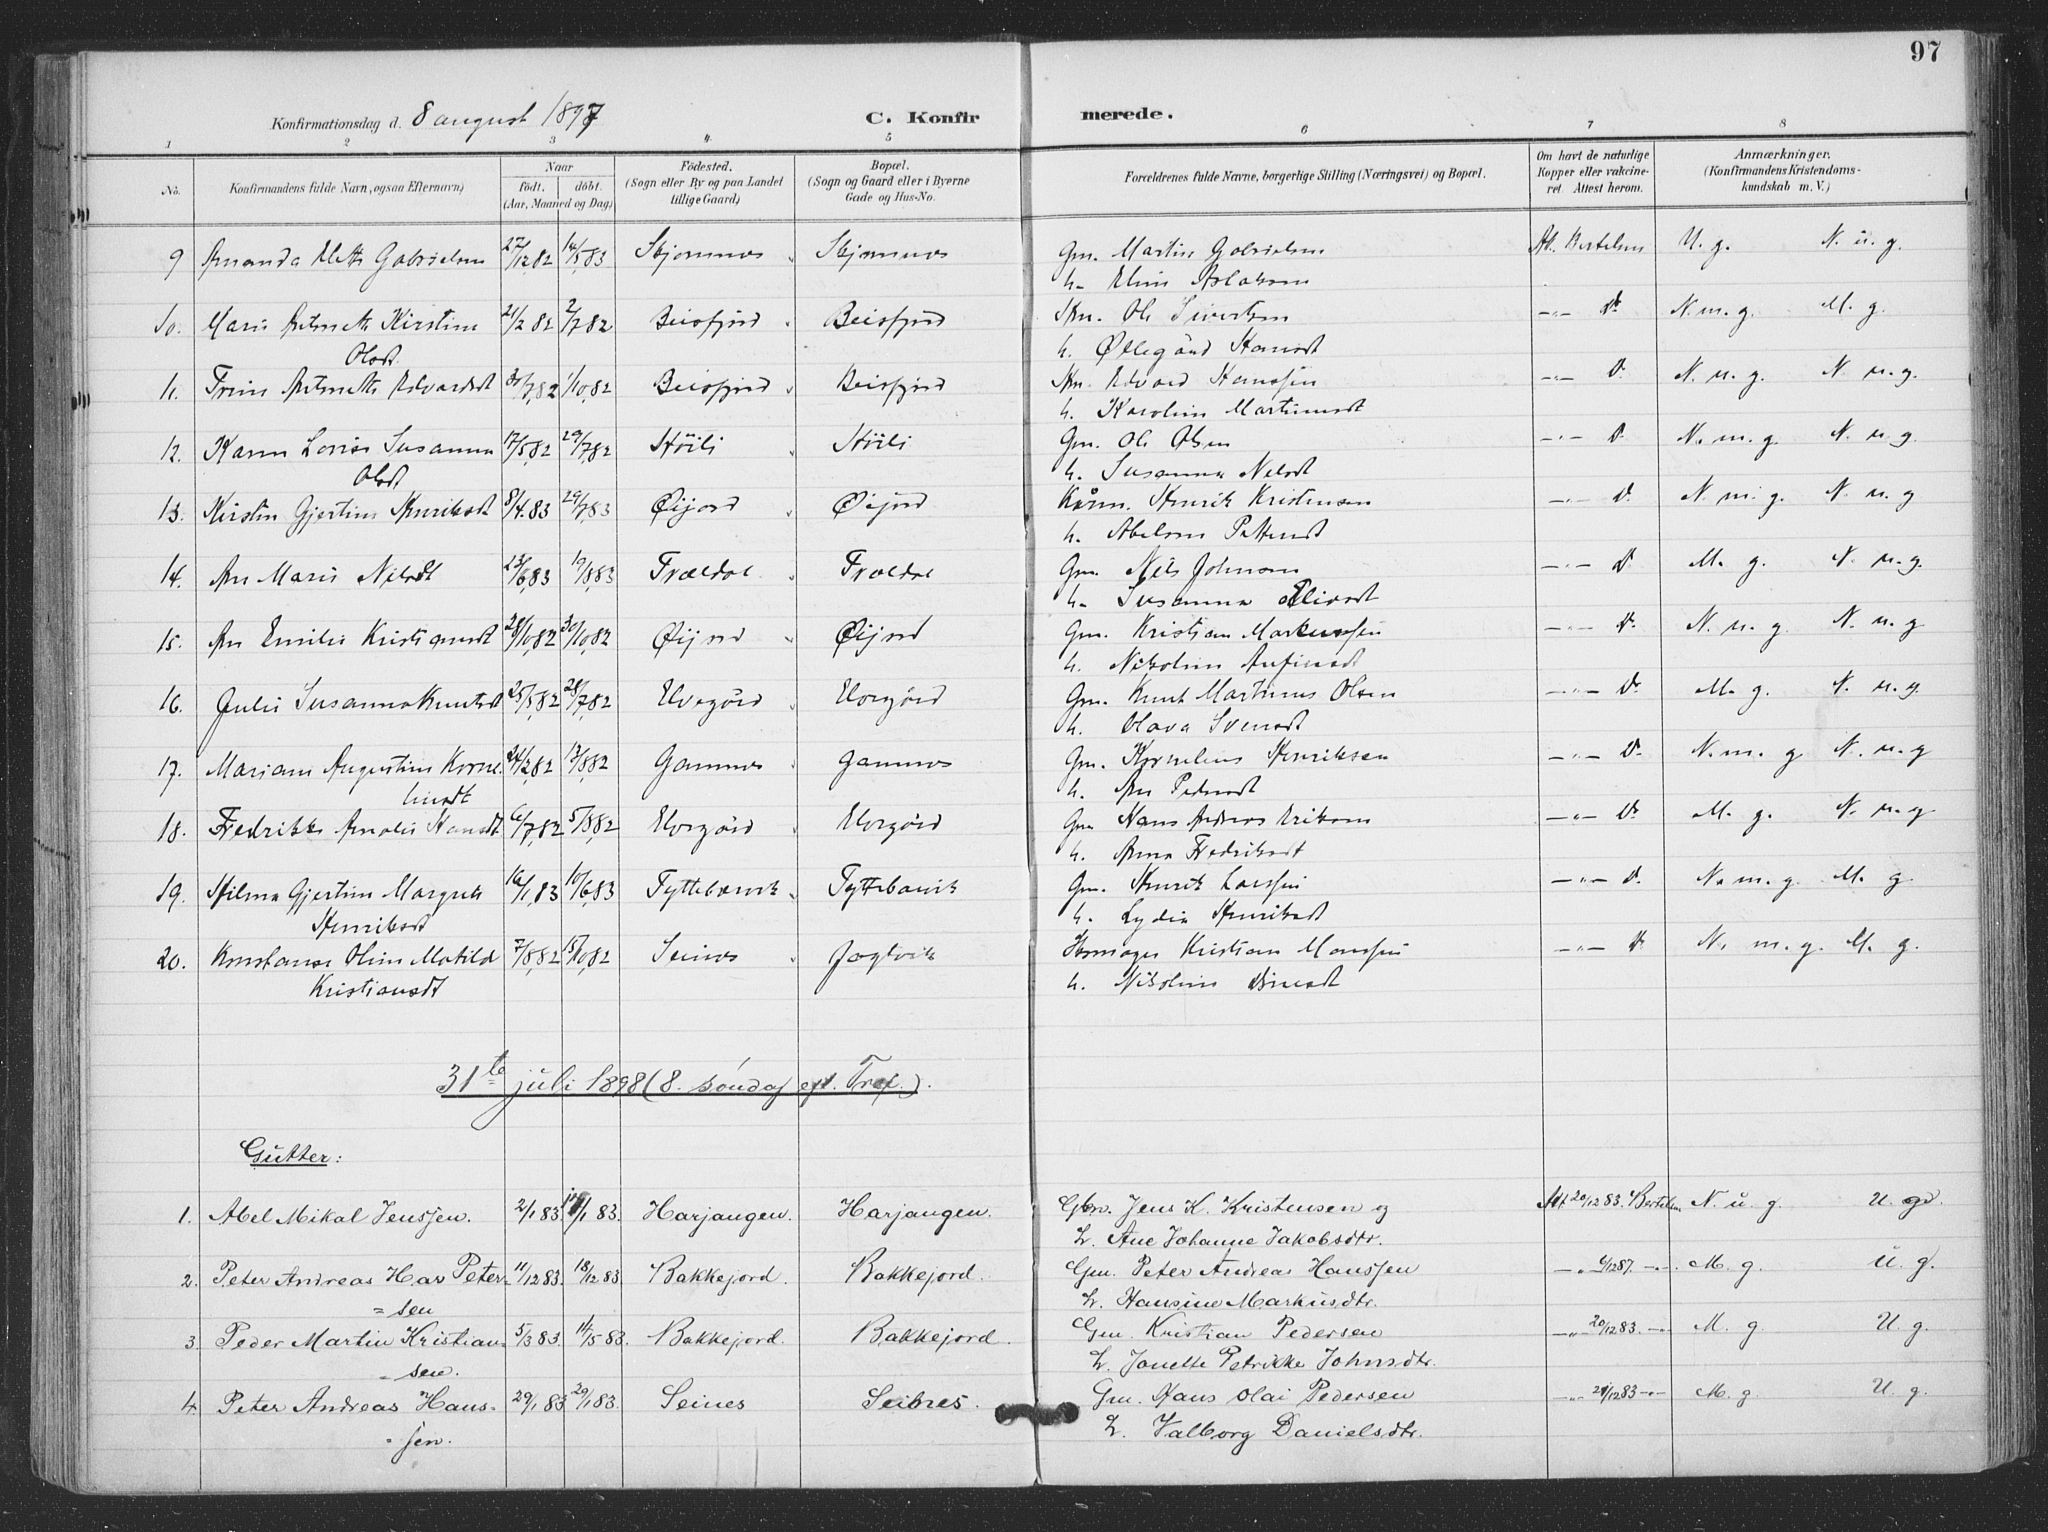 97
Konfirmationsdag d. 8 august 1897
C. Konfir merede.
1 2 3 4. 5 6 7 8
No. Konfirmandens fulde Navn, ogsaa Efternavn) Naar født. døbt. (Aar, Maaned og Dag) Fødested. (Sogn eller By og paa Landet tillige Gaard) Bopæl. (Sogn og Gaard eller i Byerne Gade og Hus-No. Forældrenes fulde Navne, borgerlige Stilling (Næringsvei) og Bopæl. Om havt de naturlige Kopper eller vakcineret. Attest herom. Anmærkninger. (Konfirmandens Kristendomskundskab m. V.)
9 Amanda Gabrielsen 27/12 82 14/5 83 Skjomnes Skjomnes Gm. Martin Gabrielsen At. Bertelsen U. g. N. u. g.
h. Elen Aslaksen
10. Marie Kirstine 21/2 82 2/7 82 Beisfjord Beisfjord Ole Sivertsen D. N. m. g. M. g.
Olsdt. h. Øllegård Hansdt
11. Edvardsdt 30/7 82 1/10 82 Beisfjord Beisfjord Edvard Hanssen D. N. u. g. N. u. g.
h. Karolin Martinusdt
12. Karen Lovise Susanna 17/5 82 29/7 82 Høili Høili Gm. Ole Olsen D. N. m. g. N. u. g.
Olsdt h. Susanna Nilsdt
13. Kirstin Gjertine Henriksdt 8/4 83 29/7 83 Øijord Øijord Henrik Kristensen D. N. m. g. N. u. g
h. Abelone
14. Ane Marie Nilsdt 23/6 83 19/8 83 Trældal Trældal Gm. Nils Johnsen D. M. g. N. u. g.
h. Susanna
15. Ane Emilie Kristiansdt 28/10 82 30/10 82 Øijord Øijord Gm. Kristian Markussen D. N. u. g. N. u. g
h. Nikoline Anfinsdt
16. Julie Susanna Knutsdt 25/5 82 28/7 82 Elvegård Elvegård Gm. Knut Martinus Olsen D. M. g. N. u. g.
h. Olava Svensdt
17. Mariane Augustine Korne- 24/2 82 13/8 82 Gamnes Gamnes Gm. Kornelius Henriksen D. N. m. g N. u. g
liusdt h. Ane Pedersdt
18. Fredrikke Amalie Hansdt 6/7 82 5/8 82 Elvegård Elvegård Gm Hans Andreas Eriksen D. M. g. N. u. g
h. Anna Fredriksdt
19. Hilma Gjertine Margrete 16/1 83 10/6 83 Tyttebærvik Tyttebærvik Gm. Henrik Larssen D. N. m. g. M. g.
Henriksdt h. Lydia Henriksdt
20. Konstanse Oline Matild 7/8 82 15/10 82 Seines Jaglvik Kristian Monssen D. N. m. g. M. g.
Kristiansdt h. Nikoline
31te juli 1898 (8. søndag eft. Tref.).
Gutter:
1. Abel Mikal Jenssen. 2/1 83. 1/1 83. Harjangen. Harjangen. Gbr. Jens K. Kristensen og Att. 20/12 83. Bertelsen N. u. g. U. g.
h. Ane Johanne Jakobsdtr.
2. Peter Andreas Peter- 11/12 83 18/12 83 Bakkejord. Bakkejord. Gm. Peter Andreas Hanssen 6/12 87. M. g. U. g.
= sen h. Hansine Markusdtr.
3. Peder Martin Kristian- 5/3 83. 14/5 83. Bakkejord. Bakkejord. Gm. Kristian Pedersen 20/12 83. M. g. U. g.
= sen. h. Jonette Petrikke Johnsdtr.
4. Peter Andreas Hans- 29/1 83 29/1 83. Seines Seines. Gm. Hans Olai Pedersen 21/12 83 M. g. U. g.
= sen. h. Valborg Danielsdtr.